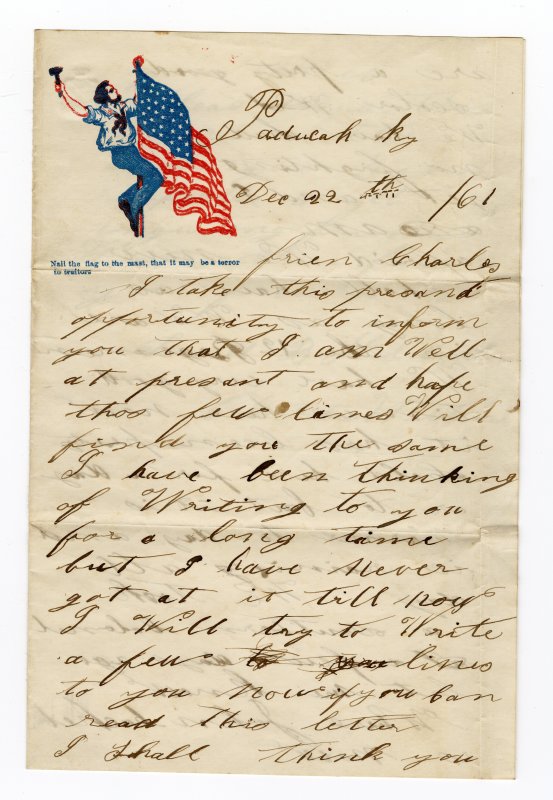 Paducah Ky
Dec 22th /61
Nail the flag to the mast, that it may be a terror
to traitors
frien Charles
I take this presant
opportunity to inform
you that I am Well
at presant and hope
thos few limes Will
find you the same
I have been thinking
of Writing to you
for a long time
but I have never
got at it till now
I Will try to Write
a few to lines
to you now if you can
read this letter
I shall think you